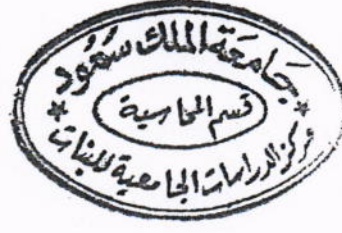 جامعة الملك سعود
قسم المحاسبة
مركز الدراسات الجامعية للبنات